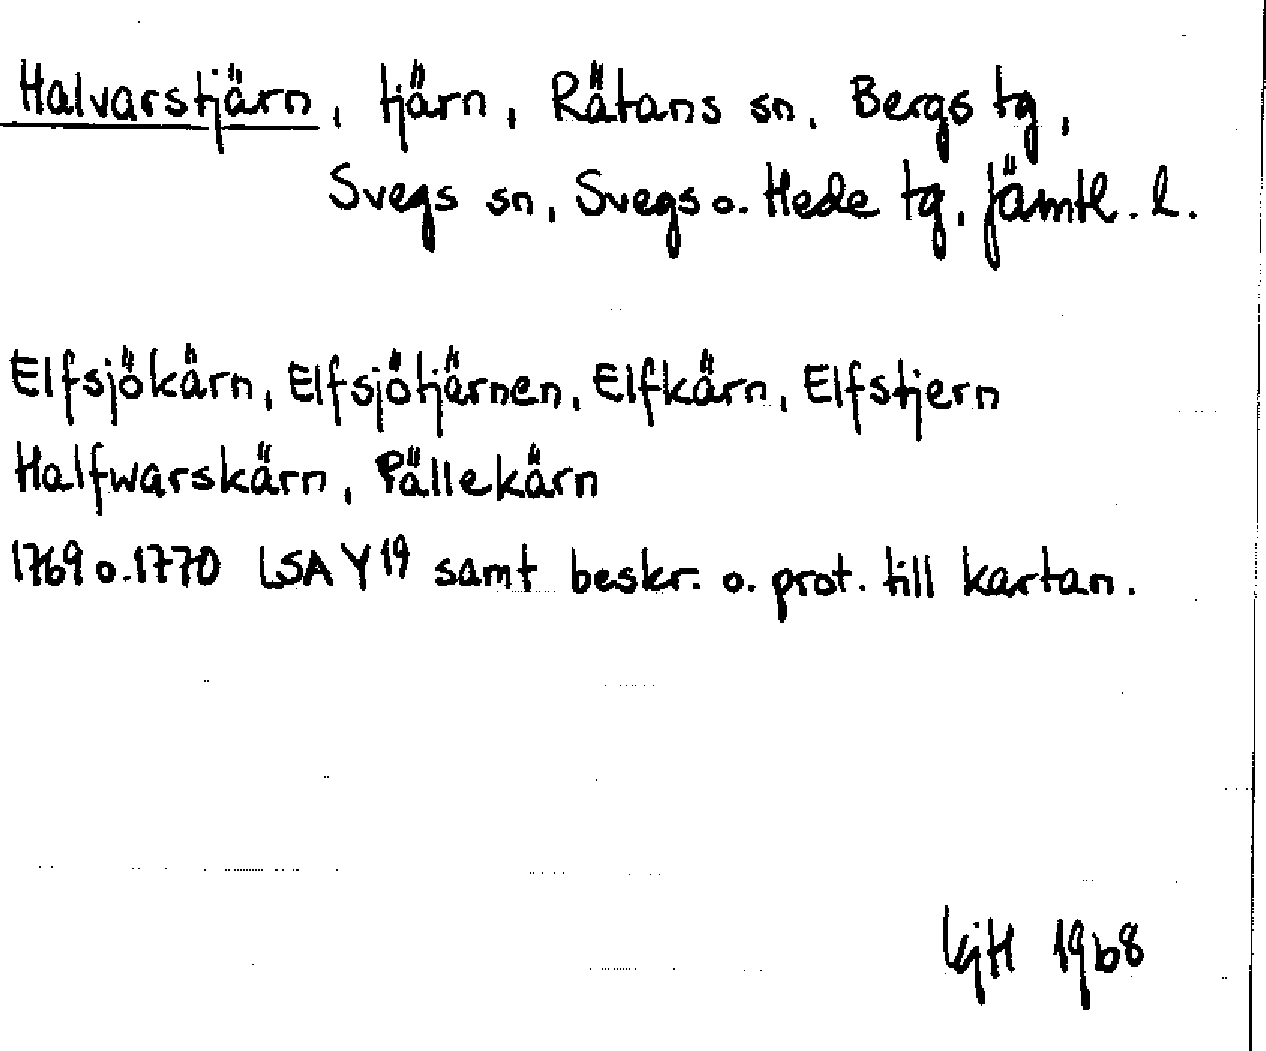 Halvarstjärn, tjärn, Rätans sn, Bergs tg,
Svegs sn, Svegs o. Hede tg, Jämtl. l.
Elfsjökärn, Elfsjötjärnen, Elfkärn, Elfstjern
Halfwarskärn, Pällekärn
1769 o. 1770 LSA Y19 samt beskr. o. prot. till kartan.
1968